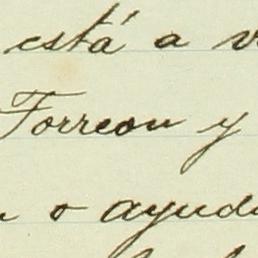 está a
Torreon y
o ayud